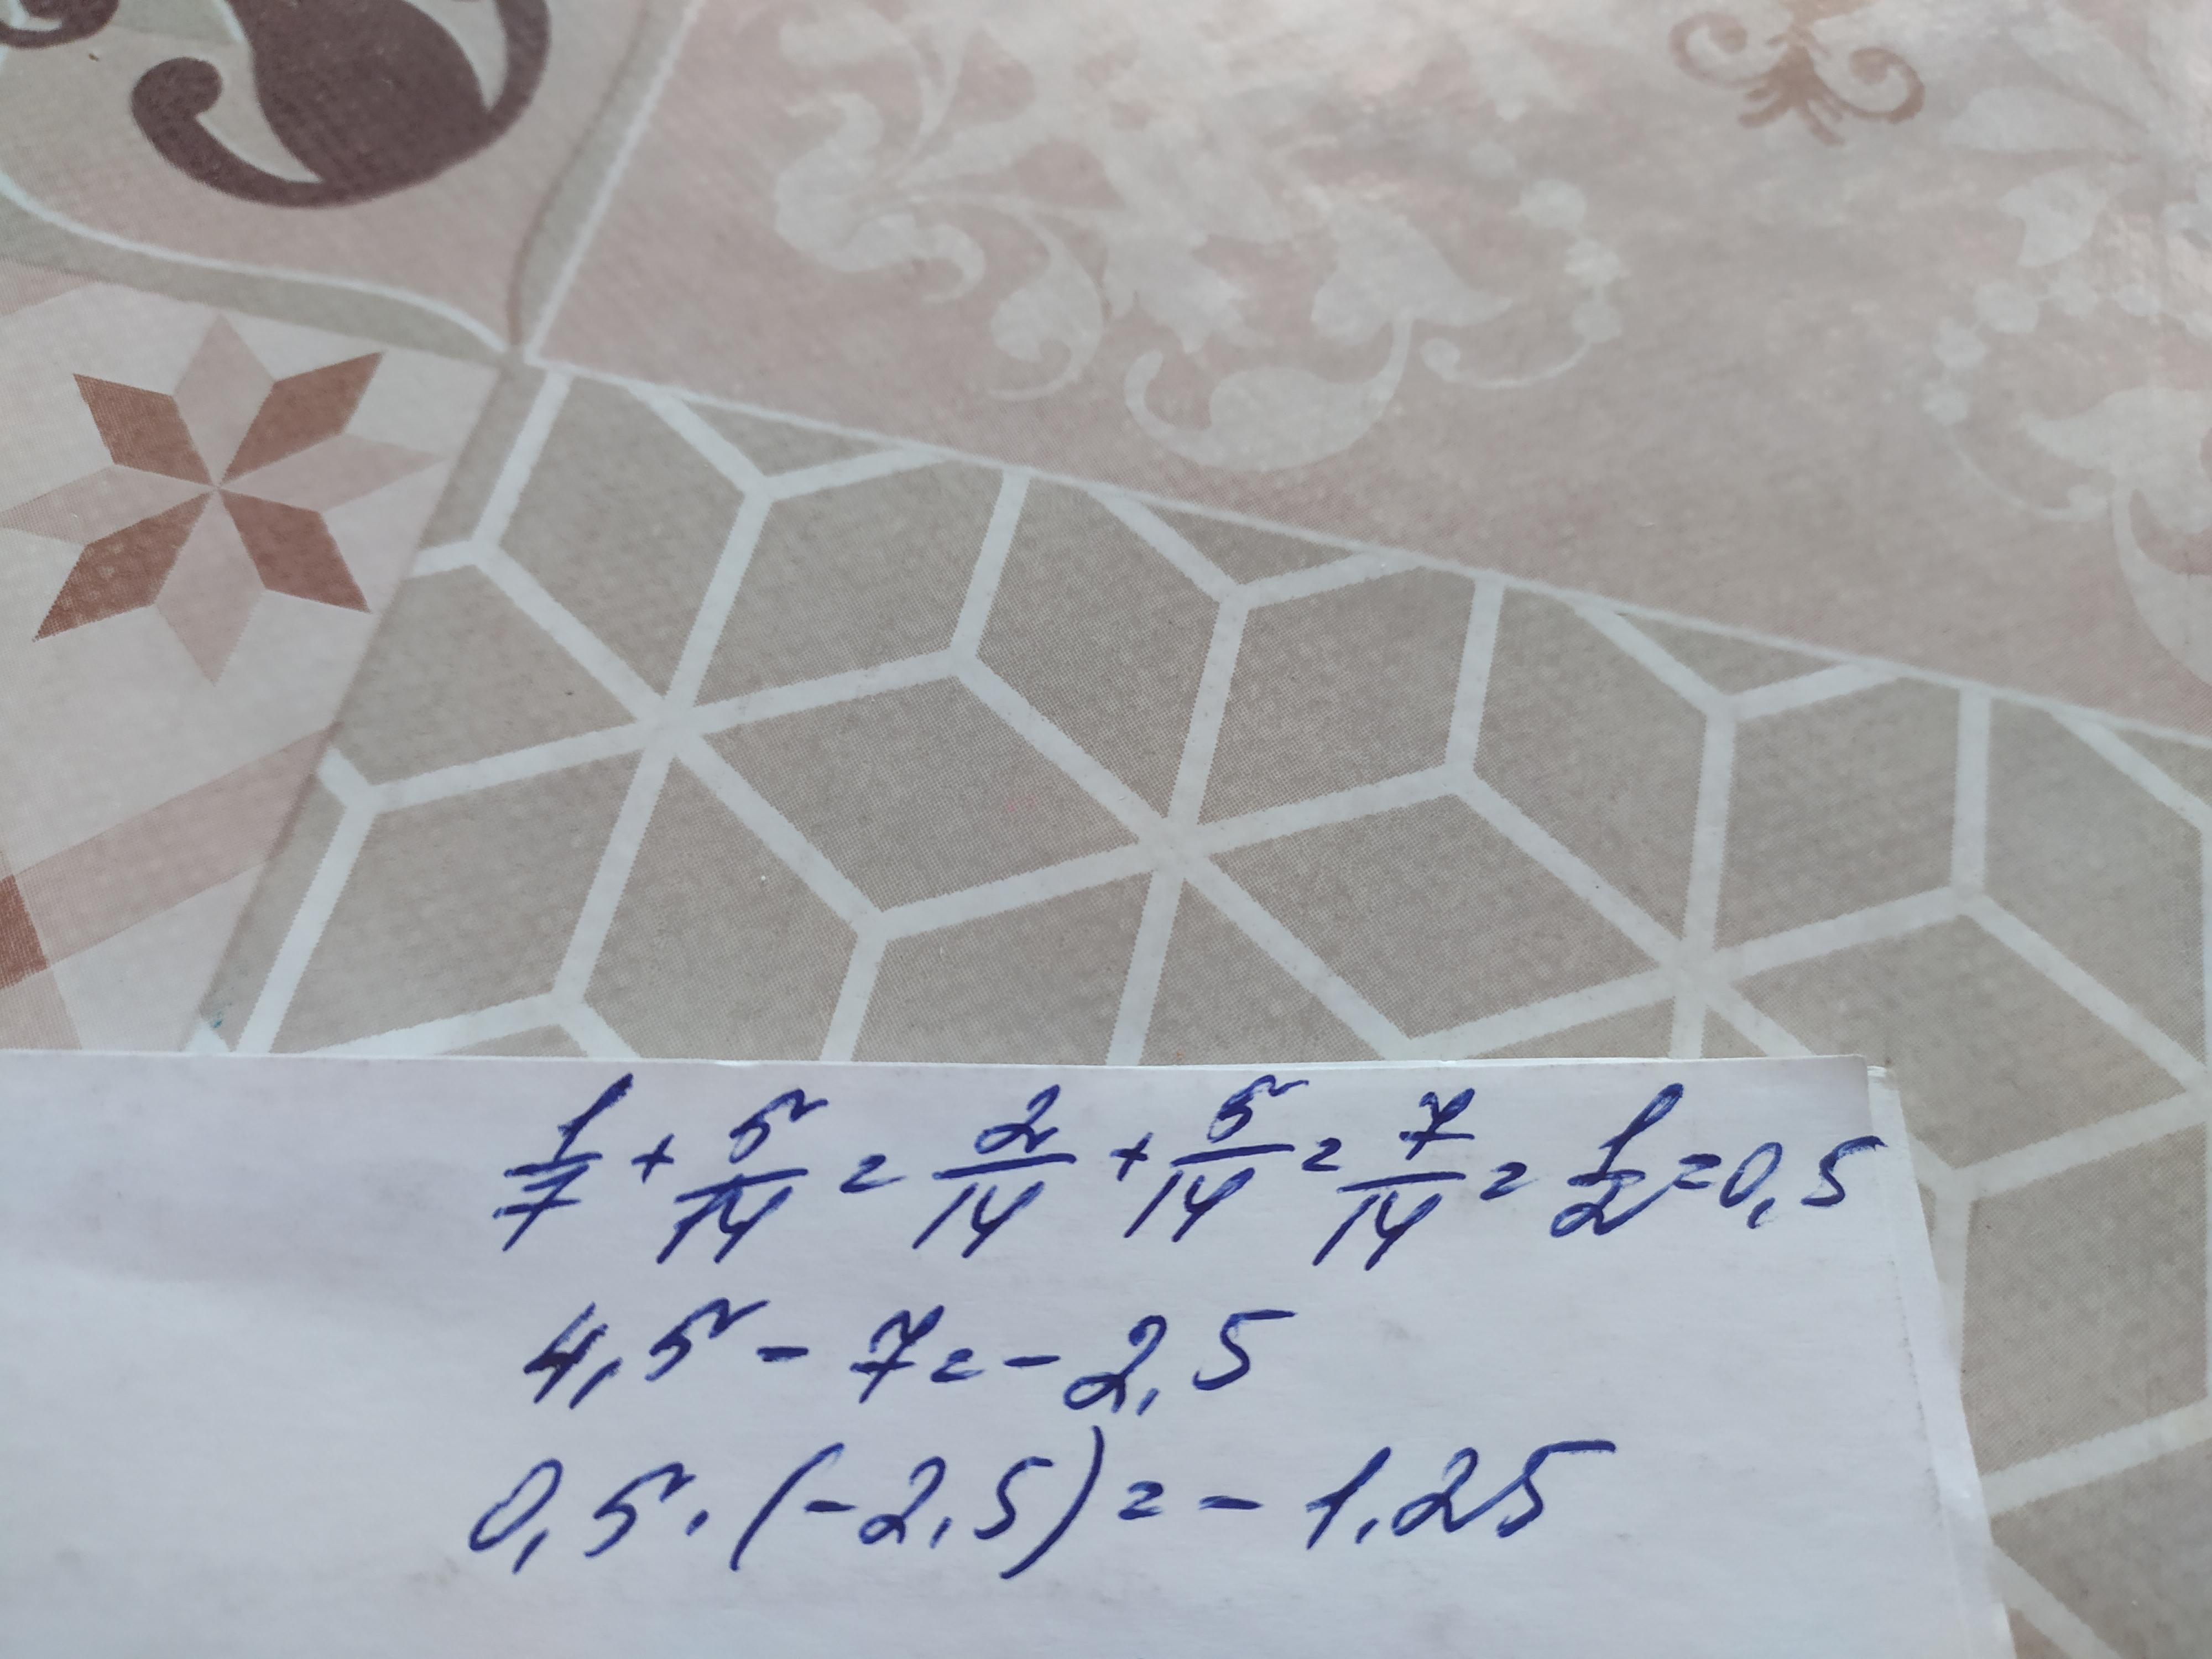 1/7 + 5/14 = 2/14 + 5/14 = 7/14 = 1/2 = 0,5
4,5 - 7 = - 2,5
0,5 · (-2,5) = - 1,25